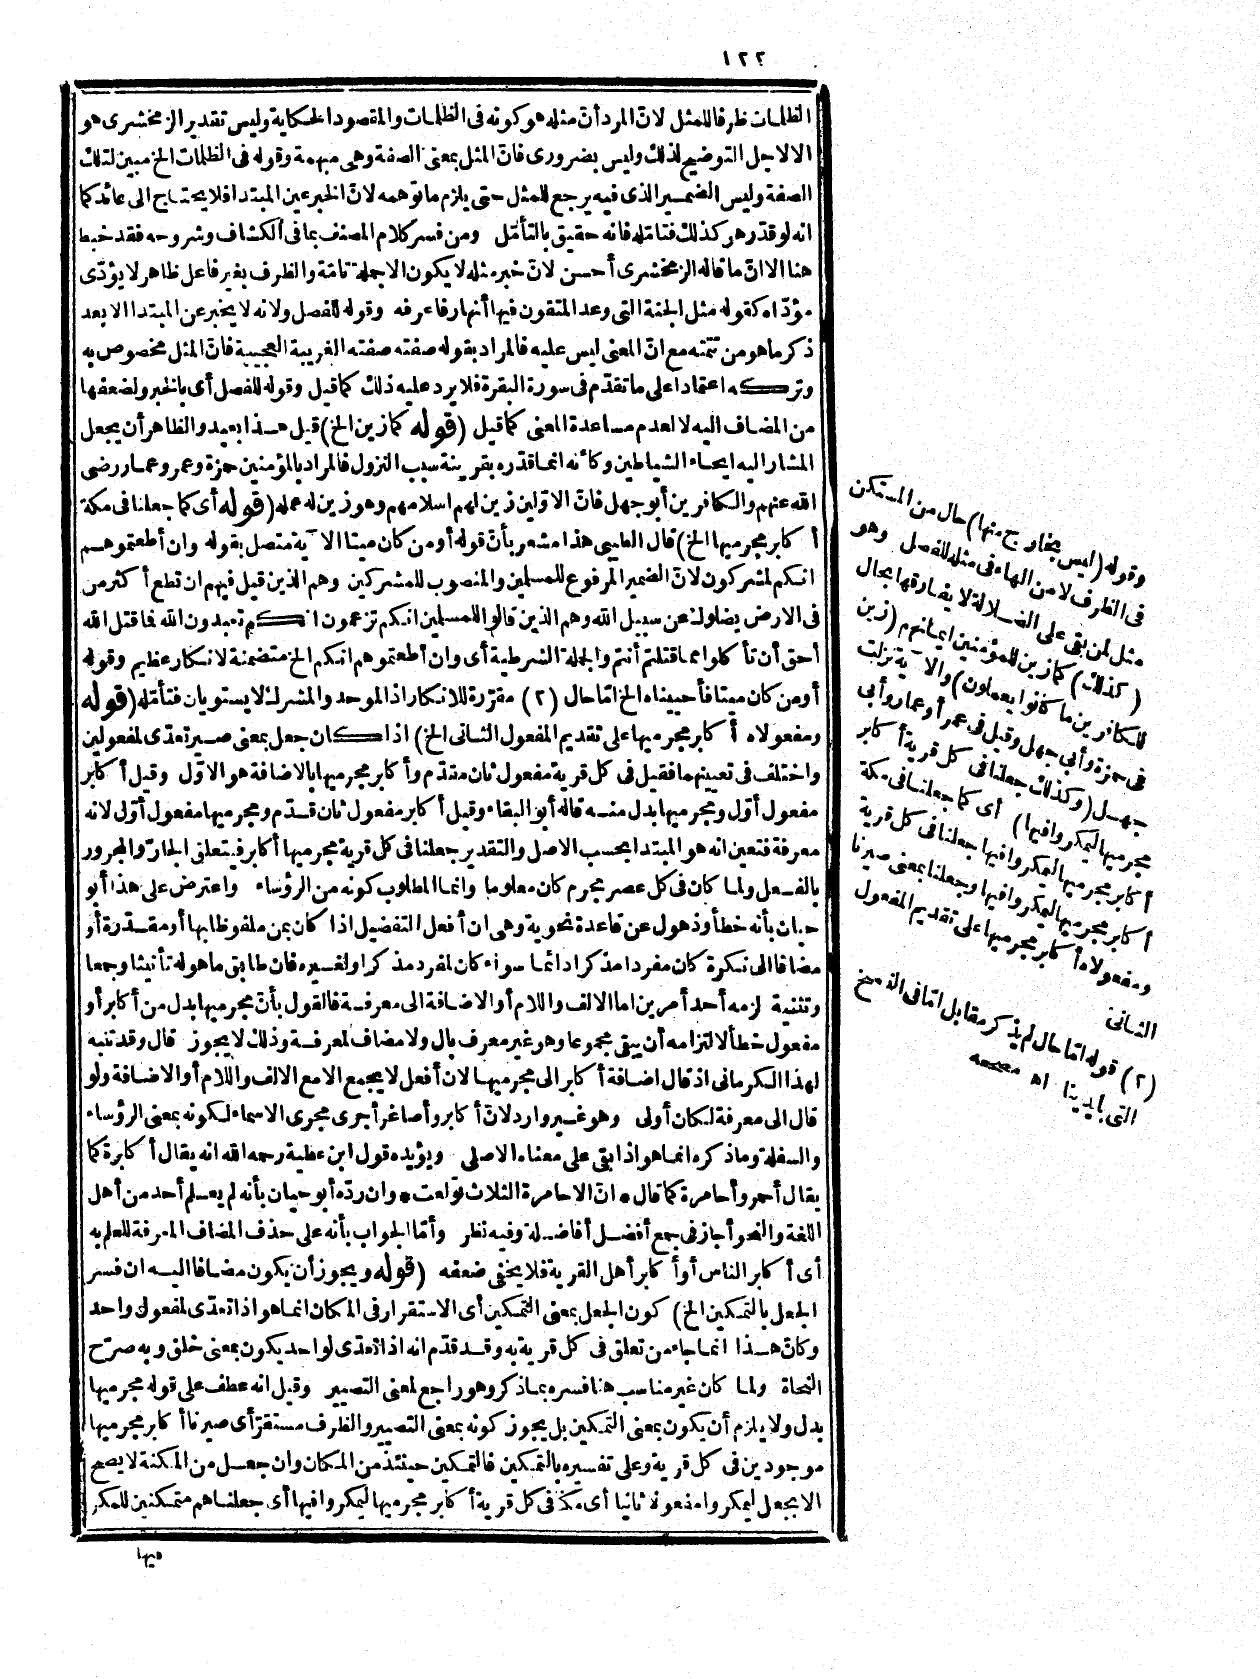 ١٢٢
الظلمات ظرفا للمثل لانّ المراد أنّ مثله هو كونه فى الظلمات والمقصود الحكاية وليس تقدير الزمخشرى هو
الالاجل التوضيح لذلك وليس بضرورى فانّ المثل بمعنى الصفة وهى مبهمة وقوله فى الظلمات الخ مبين لتلك
الصفة وليس الضمير الذى فيه يرجع للمثل حتى يلزم ما توهمه لانّ الخبر عين المبتدا فلا يحتاج الى عائد كما
انه لو قدّر هو كذلك فتأمّله فانه حقيق بالتأمّل ومن فسر كلام المصنف بما فى الكشاف وشروحه فقد خبط
هنا الا انّ ما قاله الزمخشرى أحسن لانّ خبر مثله لا يكون الا جملة تامّة والظرف بغير فاعل ظاهر لا يؤدّى
مؤدّاه كقوله مثل الجنة التى وعد المتقون فيها أنهار فاعرفه وقوله للفصل ولانه لا يخبر عن المبتدا الا بعد
ذكر ما هو من تتمته مع انّ المعنى ليس عليه فالمراد بقوله صفته صفته الغريبة العجيبة فانّ المثل مخصوص به
وتركه اعتمادا على ما تقدّم فى سورة البقرة فلا يرد عليه ذلك كما قيل وقوله للفصل أى بالخبر ولضعفها
من المضاف اليه لا لعدم مساعدة المعنى كما قيل (قوله كما زين الخ) قيل هذا بعيد والظاهر أن يجعل
المشار اليه ايحاء الشياطين وكأنه انما قدّره بقرينة سبب النزول فالمراد بالمؤمنين حمزة وعمر وعمار رضى
الله عنهم والكافرين أبو جهل فانّ الاوّلين زين لهم اسلامهم وهو زين له عمله (قوله أى كما جعلنا فى مكة
أكابر مجرميها الخ) قال الطيبى هذا مشعر بأنّ قوله أومن كان ميتا الآية متصل بقوله وان أطعتموهم
انكم لمشركون لانّ الضمير المرفوع للمسلمين والمنصوب للمشركين وهم الذين قيل فيهم ان تطع أكثر من
فى الارض يضلوك عن سبيل الله وهم الذين قالوا للمسلمين انكم تزعمون انكم تعبدون الله فما قتل الله
أحق أن تأكلوا مما قتلتم أنتم والجملة الشرطية أى وان أطعتموهم انكم الخ متضمنة لانكار عظيم وقوله
أومن كان ميتا فأحييناه الخ امّا حال (٢) مقرّرة للانكار اذ الموحد والمشرك لا يستويان فتأمّله (قوله
ومفعولاه أكابر مجرميها على تقديم المفعول الثانى الخ) اذا كان جعل بمعنى صير تعدّى لمفعولين
واختلف فى تعيينهما فقيل فى كل قرية مفعول ثان مقدّم وأكابر مجرميها بالاضافة هو الاوّل وقيل أكابر
مفعول أوّل ومجرميها بدل منه قاله أبو البقاء وقيل أكابر مفعول ثان قدّم ومجرميها مفعول أوّل لانه
معرفة فتعين انه هو المبتدا بحسب الاصل والتقدير جعلنا فى كل قرية مجرميها أكابر فيتعلق الجارّ والمجرور
بالفعل ولما كان فى كل عصر مجرم كان معلوما وانما المطلوب كونه من الرؤساء واعترض على هذا أبو
حيان بأنه خطأ وذهول عن قاعدة نحوية وهى ان أفعل التفضيل اذا كان بمن ملفوظا بها أو مقدّرة أو
مضافا الى نكرة كان مفردا مذكرا دائما سواء كان لمفرد مذكر او لغيره فان طابق ما هو له تأنيثا وجمعا
وتثنية لزمه أحد أمرين اما الالف واللام أو الاضافة الى معرفة فالقول بأنّ مجرميها بدل من أكابر أو
مفعول خطأ لالتزامه أن يبقى مجموعا وهو غير معرف بال ولا مضاف لمعرفة وذلك لا يجوز قال وقد تنبه
لهذا الكرمانى اذ قال اضافة أكابر الى مجرميها لان أفعل لا يجمع الا مع الالف واللام أو الاضافة ولو
قال الى معرفة لكان أولى وهو غير وارد لانّ أكابر وأصاغر أجرى مجرى الاسماء لكونه بمعنى الرؤساء
والسفلة وما ذكره انما هو اذا بقى على معناه الاصلى ويؤيده قول ابن عطية رحمه الله انه يقال أكابرة كما
يقال أحمر وأحامرة كما قال * انّ الاحامرة الثلاث تولعت * وان ردّه أبو حيان بأنه لم يعلم أحد من أهل
اللغة والنحو أجاز فى جمع أفضل أفاضلة وفيه نظر وأمّا الجواب بأنه على حذف المضاف المعرفة للعلم به
أى أكابر الناس أو أكابر أهل القرية فلا يخفى ضعفه (قوله ويجوز أن يكون مضافا اليه ان فسر
الجعل بالتمكين الخ) كون الجعل بمعنى التمكين أى الاستقرار فى المكان انما هو اذا تعدّى لمفعول واحد
وكان هذا انما جاء من تعلق فى كل قرية به وقد قدّم انه اذا تعدّى لواحد يكون بمعنى خلق وبه صرّح
النحاة ولما كان غير مناسب هنا فسره بما ذكر وهو راجع لمعنى التصيير وقيل انه عطف على قوله مجرميها
بدل ولا يلزم أن يكون بمعنى التمكين بل يجوز كونه بمعنى التصيير والظرف مستقرّ أى صيرنا أكابر مجرميها
موجودين فى كل قرية وعلى تفسيره بالتمكين فالتمكين حينئذ من المكان وان جعل من المكنة لا يصح
الا بجعل ليمكروا مفعولا ثانيا أى مكنا فى كل قرية أكابر مجرميها ليمكروا فيها أى جعلناهم متمكنين للمكر
فيها
وقوله (ليس بخارج منها) حال من المستكن
فى الظرف لا من الهاء فى مثله للفصل وهو
مثل لمن بقى على الضلالة لا يفارقها بحال
(كذلك) كما زين للمؤمنين ايمانهم (زين
للكافرين ما كانوا يعملون) والآية نزلت
فى حمزة وأبى جهل وقيل فى عمر أو عمار وأبى
جهل (وكذلك جعلنا فى كل قرية أكابر
مجرميها ليمكروا فيها) أى كما جعلنا فى مكة
أكابر مجرميها ليمكروا فيها جعلنا فى كل قرية
أكابر مجرميها ليمكروا فيها وجعلنا بمعنى صيرنا
ومفعولاه أكابر مجرميها على تقديم المفعول
الثانى
(٢) قوله امّا حال لم يذكر مقابل امّا فى النسخ
التى بايدينا اه مصححه